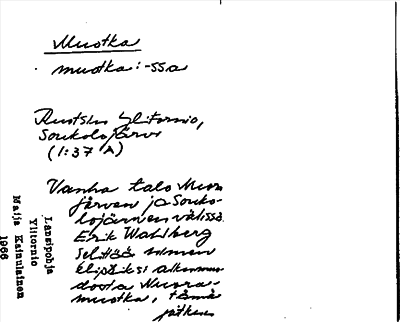 Muotka
muotka: -ssa
Ruotsin Ylitornio,
Soukolojärvi
(1:37 A)
Vanha talo
järven ja Souko-
lojärven välissä.
Erik Wahlberg
selittää nimen
ellipsiksi
muotka, tämä
jatkuu
Länsipohja
Ylitornio
Maija Kainulainen
1966